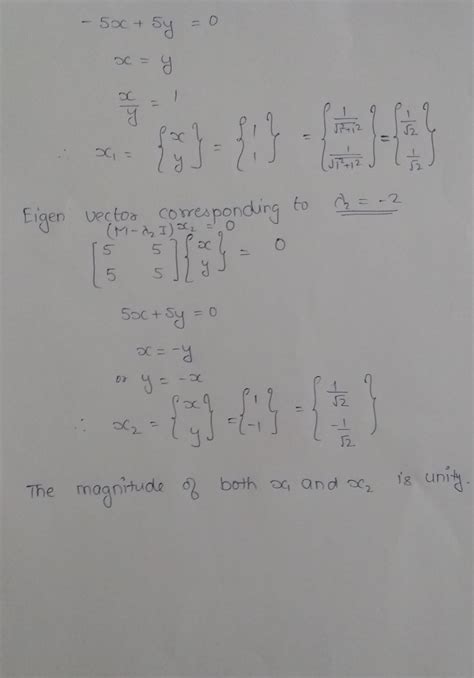 - 5x + 5y = 0
x = y
x/y = 1
∴ x₁ = {x y} = {1 1} = {1/√1²+1² 1/√1²+1²} = {1/√2 1/√2}
Eigen vector corresponding to λ₂ = -2
(M - λ₂ I) x₂ = 0
[5 5 5 5] {x y} = 0
5x + 5y = 0
x = -y
or y = -x
∴ x₂ = {x y} = {1 -1} = {1/√2 -1/√2}
The magnitude of both x₁ and x₂ is unity.